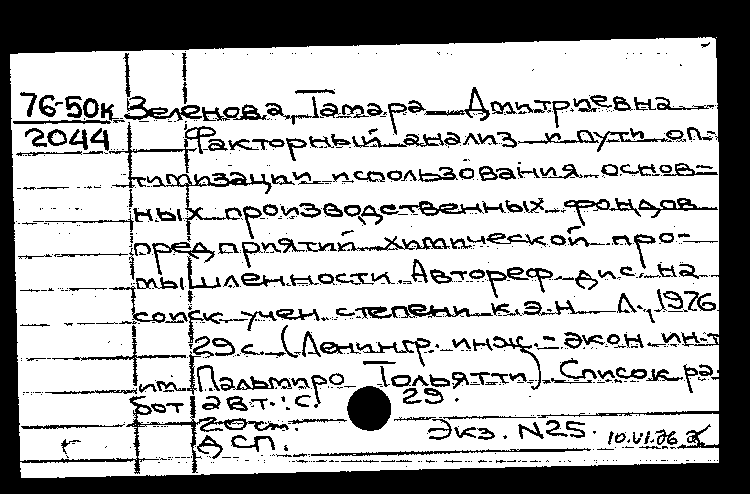 76-50к Зеленова, Тамара Дмитриевна
2044 Факторный анализ и пути оп-
тимизации использования основ-
ных производственных фондов
предприятий химической про-
мышленности. Автореф. дис. на
соиск. учен. степени к.э.н. Л., 1976
29 с. (Ленингр. инж.-экон. ин-т
им. Пальмиро Тольятти) Список ра-
бот авт.: с. 29.
20 см.
ДСП. Экз. N25. 10.VI.76